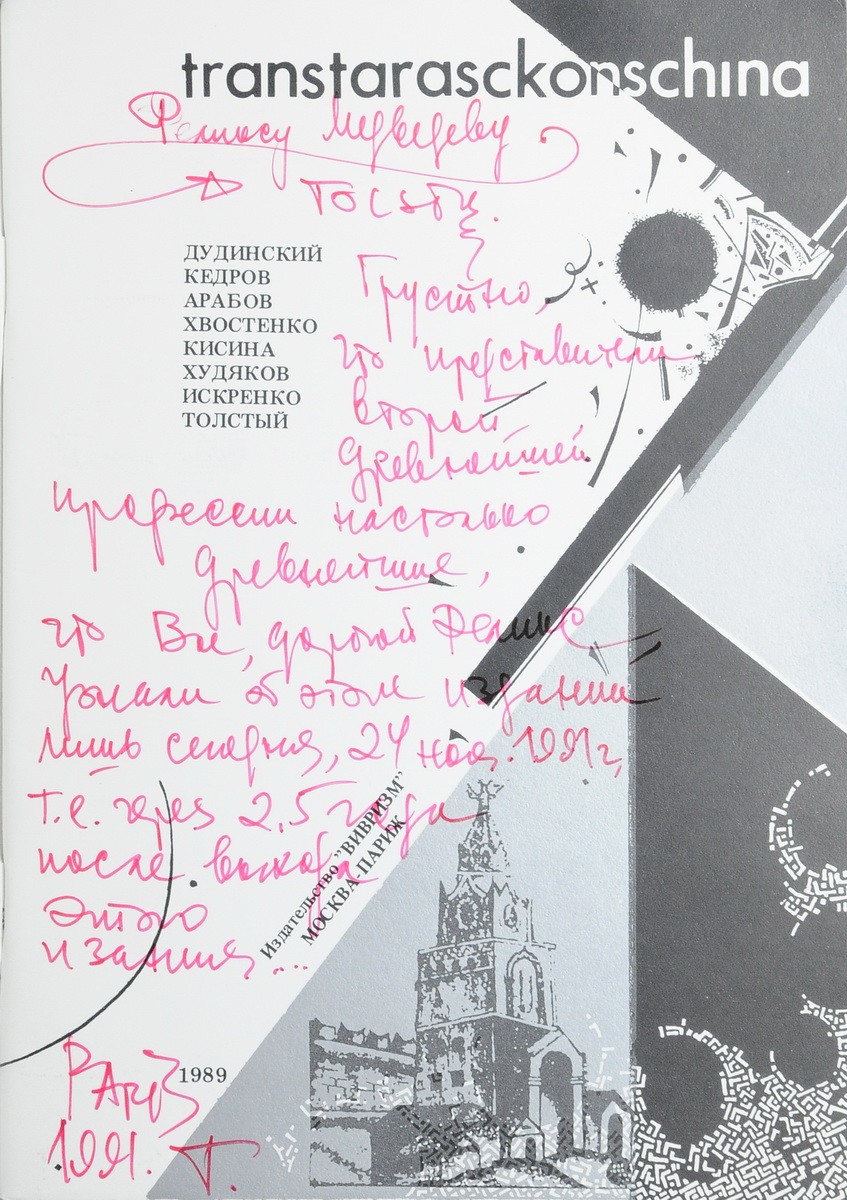 transtarasckonschina
Феликсу Медведеву
ДУДИНСКИЙ
КЕДРОВ
АРАБОВ
ХВОСТЕНКО
КИСИНА
ХУДЯКОВ
ИСКРЕНКО
ТОЛСТЫЙ
Грустно,
что представители
второй
древнейшей
профессии настолько
древнейшие,
что Вы, дорогой Феликс
Узнали об этом издании
лишь сегодня, 24 ноя. 1991 г,
т.е. через 2,5 года
после выхода
этого
издания...
Издательство "ВИВРИЗМ"
МОСКВА-ПАРИЖ
1989
1991. Т.